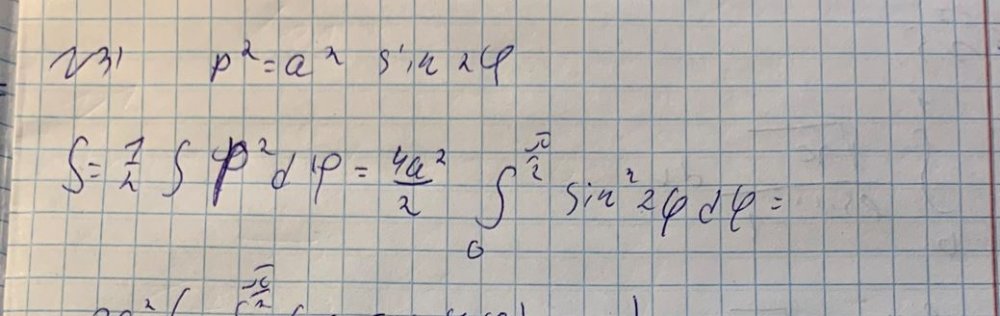 №31 ρ² = a² sin 2φ
S = 1/2 ∫ ρ² dφ = 4a²/2 ∫₀^(π/2) sin² 2φ dφ =